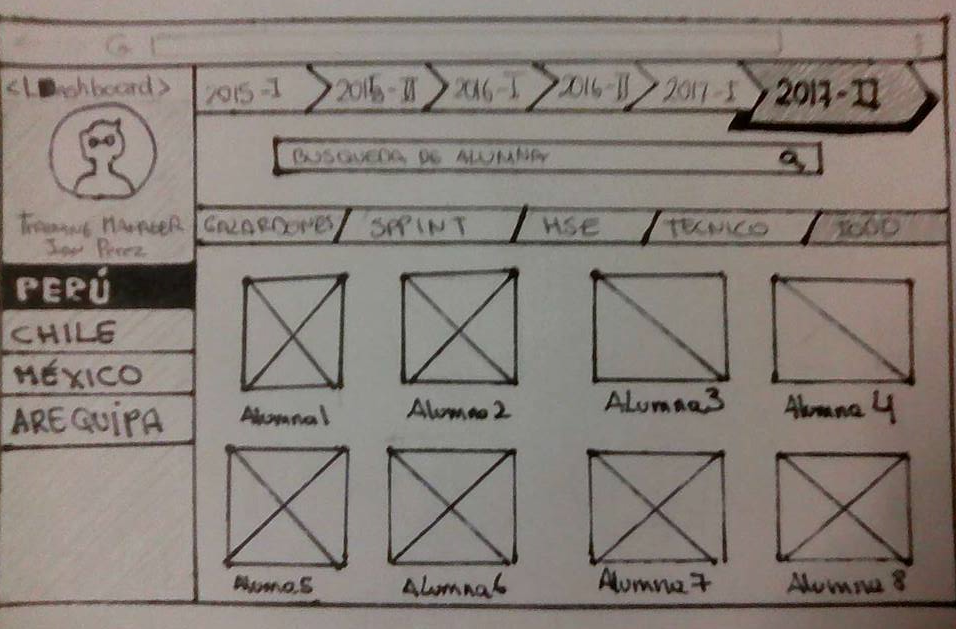 <L Dashboard>
TRAINING MANAGER
Juan Pérez
PERÚ
CHILE
MÉXICO
AREQUIPA
2015-I 2015-II 2016-I 2016-II 2017-I 2017-II
BUSQUEDA DE ALUMNA
GALARDONES / SPPINT / HSE / TECNICO / TODO
Alumna1 Alumna2 Alumna3 Alumna 4
Aluma5 Alumna6 Alumna7 Alumna 8